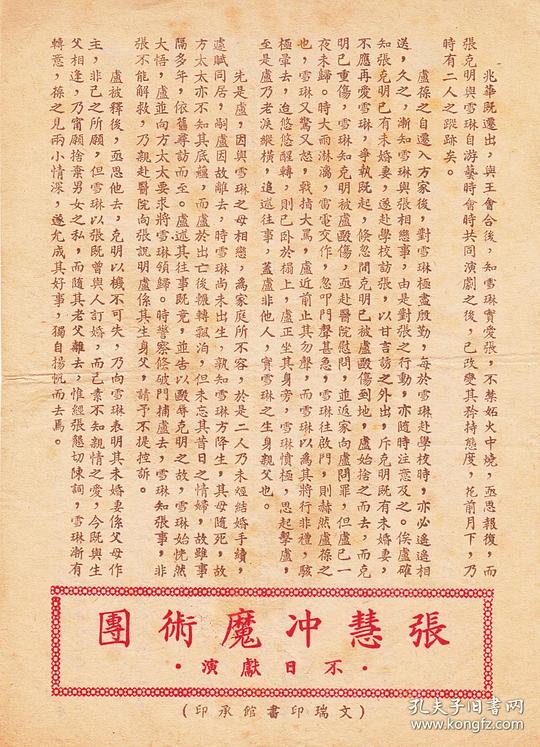 兆華旣還出，與王會合後，知雪琳實愛張，不禁妬火中燒，亟思報復，而
張克明與雪琳自游藝時會時共同演劇之後，已改變其矜持態度，花前月下，乃
時有二人之蹤跡矣。
盧葆之自還入方家後，對雪琳極盡殷勤，每於雪琳赴學校時，亦必遙遙相
送，久之，漸知雪琳與張相戀事，由是對張之行動，亦隨時注意及之。俟盧確
知張克明已有未婚妻，遂赴學校訪張，以甘言誘之外出，斥克明旣有未婚妻，
不應再愛雪琳，爭執旣起，倏忽間克明已被盧毆傷到地，盧始捨之而去，而克
明已重傷，雪琳知克明被盧毆傷，亟赴醫院慰問，並返家向盧問罪，但盧已一
夜未歸。時大雨淋漓，雷電交作，忽叩門聲甚急，雪琳往啟門，則赫然盧葆之
也，雪琳又驚又怒，戟指大罵，盧近前止其勿聲，而雪琳以為其將行非禮，駭
極暈去，迨悠悠醒轉，則已卧於榻上，盧正坐其身旁，雪琳憤極，思起擊盧，
至是盧乃老淚縱橫，追述往事，蓋盧非他人，實雪琳之生身親父也。
先是盧，因與雪琳之母相戀，為家庭所不容，於是二人乃未經結婚手續，
遽賦同居，嗣盧因故離去，時雪琳尚未出生，孰知雪琳方降生，其母隨死，故
方太太亦不知其底蘊，而盧於出亡後輾轉飄泊，但未忘其昔日之情婦，故雖事
隔多年，依舊尋訪而至。盧述其往事旣竟，並告以毆辱克明之故，雪琳始恍然
大悟，盧並至方太太要求將雪琳領歸。時警察條破門捕盧去，雪琳知張事，非
張不能解救，乃親赴醫院向張說明盧係其生身父，請予不提控訴。
盧被釋後，亟思他去，克明以機不可失，乃向雪琳表明其未婚妻係父母作
主，非己之所願，但雪琳以張旣曾與人訂婚，而己素不知親情之愛，今旣與生
父相逢，乃甯願捨棄男女之私，而隨其老父離去，惟經張懇切陳詞，雪琳漸有
轉意，葆之見兩小情深，遂允成其好事，獨自揚帆而去焉。
張慧冲魔術團
·不日獻演·
（文瑞印書館承印）
孔夫子旧书网
www.kongfz.com